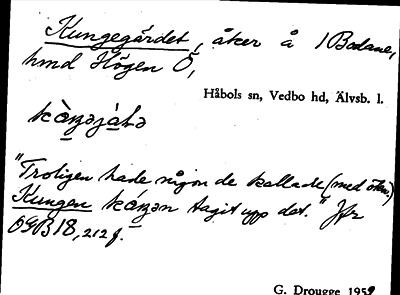 Kungegärdet, åker å 1 Bodane,
hmd Högen Ö,
Håbols sn, Vedbo hd, Älvsb. l.
"Troligen hade någon de kallade (med ökn)
Kungen tagit upp det." Jfr
OGB 18, 212 f.
G. Drougge 1959